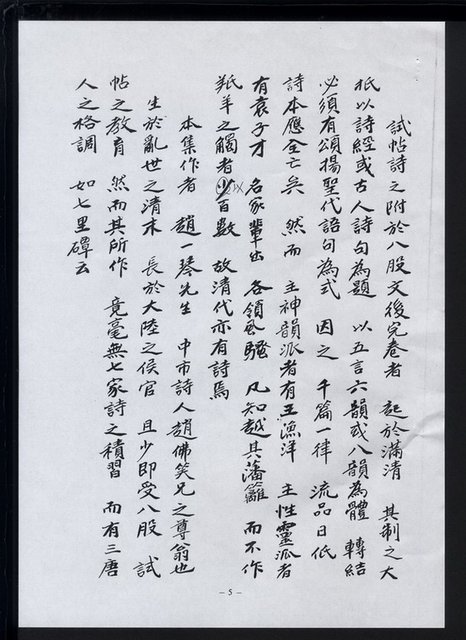 試帖詩之附於八股文後完卷者　起於滿清　其制之大
抵以詩經或古人詩句為題　以五言六韻或八韻為體　轉結
必須有頌揚聖代語句為式　因之　千篇一律　流品日低
詩本應全亡矣　然而　主神韻派者有王漁洋　主性靈派者
有袁子才　名家輩出　各領風騷　凡知越其藩籬　而不作
羝羊之觸者少以百數　故清代亦有詩焉
本集作者　趙一琴先生　中市詩人趙佛笑兄之尊翁也
生於亂世之清末　長於大陸之侯官　且少即受八股　試
帖之教育　然而其所作　竟毫無七家詩之積習　而有三唐
人之格調　如七里磹云
- 5 -